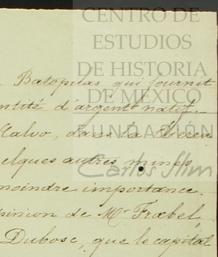 CENTRO DE
ESTUDIOS
DE HISTORIA
DE MÉXICO
FUNDACIÓN
Carlos Slim
Batopilas qui fournit
entité d'argent natif
Calvo, dans l'
elques autres mines
moindre importance.
pinion de Mr Frœbel,
Dubosc, que le capital